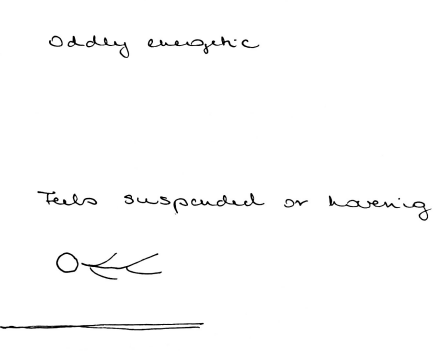 Oddly energetic
Feels suspended or hovering